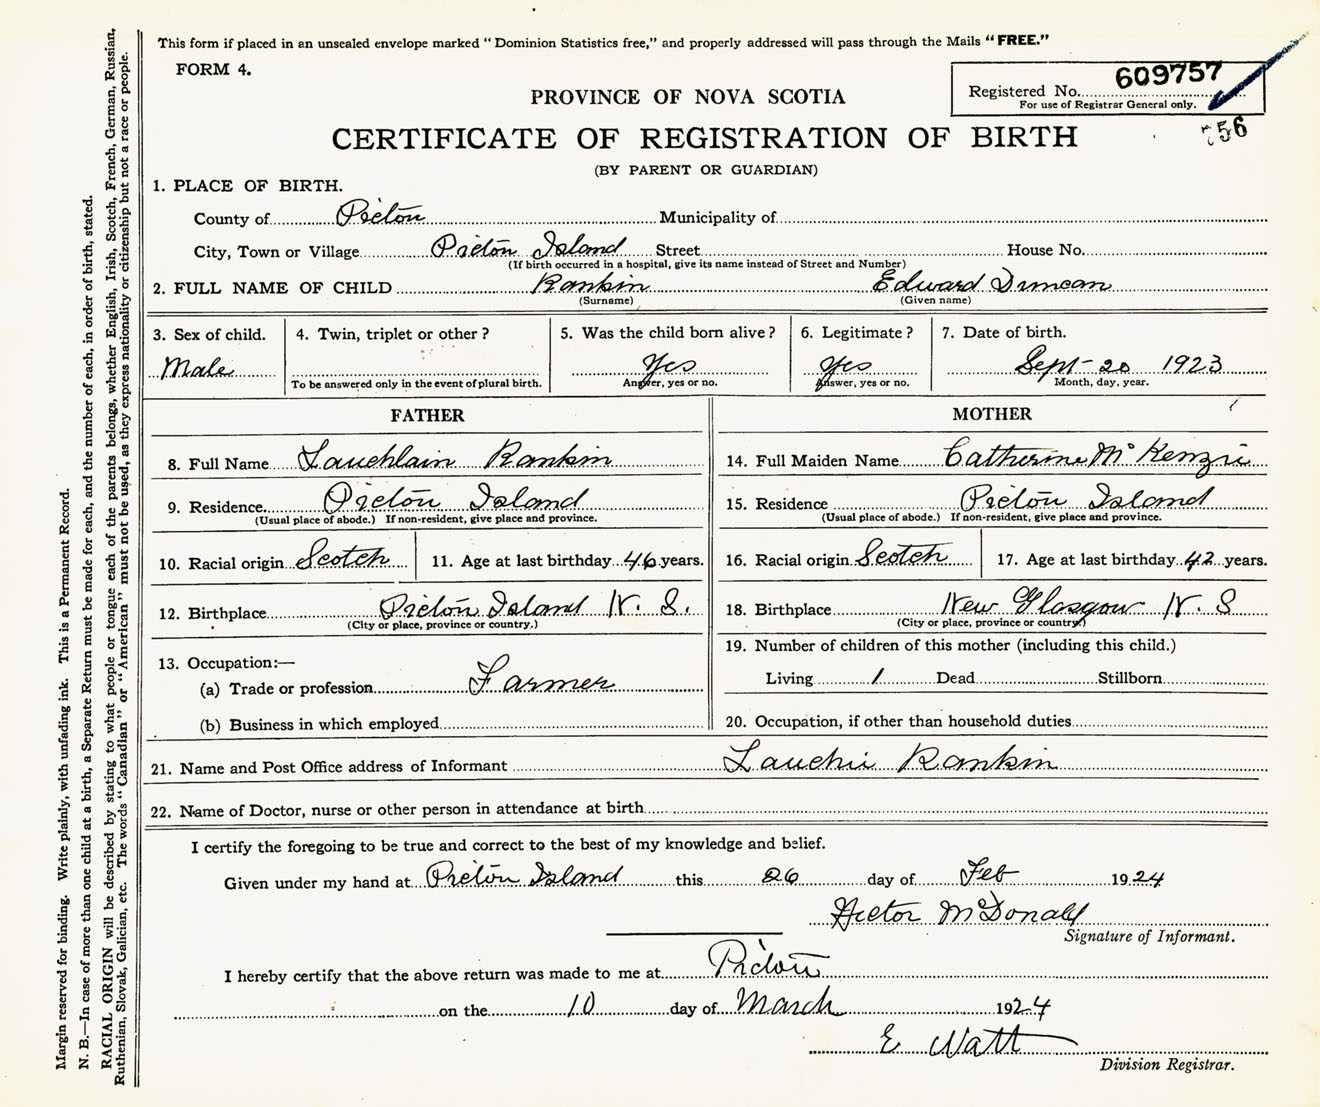 This form if placed in an unsealed envelope marked "Dominion Statistics free," and properly addressed will pass through the Mails "FREE."
FORM 4.
Registered No. 609757
For use of Registrar General only.
PROVINCE OF NOVA SCOTIA
CERTIFICATE OF REGISTRATION OF BIRTH
756
(BY PARENT OR GUARDIAN)
1. PLACE OF BIRTH.
County of Pictou Municipality of
City, Town or Village Pictou Island Street House No.
(If birth occurred in a hospital, give its name instead of Street and Number)
2. FULL NAME OF CHILD Rankin Edward Duncan
(Surname) (Given name)
3. Sex of child. 4. Twin, triplet or other? 5. Was the child born alive? 6. Legitimate? 7. Date of birth.
Male Yes Yes Sept - 20 1923
To be answered only in the event of plural birth. Answer, yes or no. Answer, yes or no. Month, day, year.
FATHER
8. Full Name Lauchlain Rankin
9. Residence. Pictou Island
(Usual place of abode.) If non-resident, give place and province.
10. Racial origin Scotch 11. Age at last birthday 46 years.
12. Birthplace Pictou Island N. S.
(City or place, province or country.)
13. Occupation:—
(a) Trade or profession Farmer
(b) Business in which employed
MOTHER
14. Full Maiden Name Catherine McKenzie
15. Residence Pictou Island
(Usual place of abode.) If non-resident, give place and province.
16. Racial origin Scotch 17. Age at last birthday 42 years.
18. Birthplace New Glasgow N. S
(City or place, province or country)
19. Number of children of this mother (including this child.)
Living 1 Dead Stillborn
20. Occupation, if other than household duties
21. Name and Post Office address of Informant Lauchie Rankin
22. Name of Doctor, nurse or other person in attendance at birth
I certify the foregoing to be true and correct to the best of my knowledge and belief.
Given under my hand at Pictou Island this 26 day of Feb 1924
Hector McDonald
Signature of Informant.
I hereby certify that the above return was made to me at Pictou
on the 10 day of March 1924
E Watt
Division Registrar.
Margin reserved for binding. Write plainly, with unfading ink. This is a Permanent Record.
N. B.—In case of more than one child at a birth, a Separate Return must be made for each, and the number of each, in order of birth, stated.
RACIAL ORIGIN will be described by stating to what people or tongue each of the parents belongs, whether English, Irish, Scotch, French, German, Russian,
Ruthenian, Slovak, Galician, etc. The words "Canadian" or "American" must not be used, as they express nationality or citizenship but not a race or people.